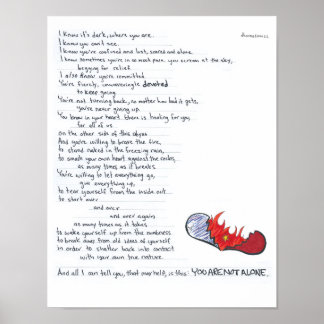 I know it's dark, where you are.
I know you can't see.
I know you're confused and lost, scared and alone.
I know sometimes you're in so much pain you scream at the sky,
begging for relief.
I also know you're committed.
You're fiercely, unwaveringly devoted
to keep going.
You're not turning back, no matter how bad it gets,
you're never giving up.
You know in your heart there is healing for you,
for all of us
on the other side of this abyss
And you're willing to brave the fire,
to stand naked in the freezing rain,
to smash your own heart against the rocks,
as many times as it breaks.
You're willing to let everything go,
give everything up,
to tear yourself from the inside out
to start over
and over
and over again
as many times as it takes
to wake yourself up from the numbness
to break away from old ideas of yourself
in order to shatter back into contact
with your own true nature.
And all I can tell you, that over help, is this: YOU ARE NOT ALONE.